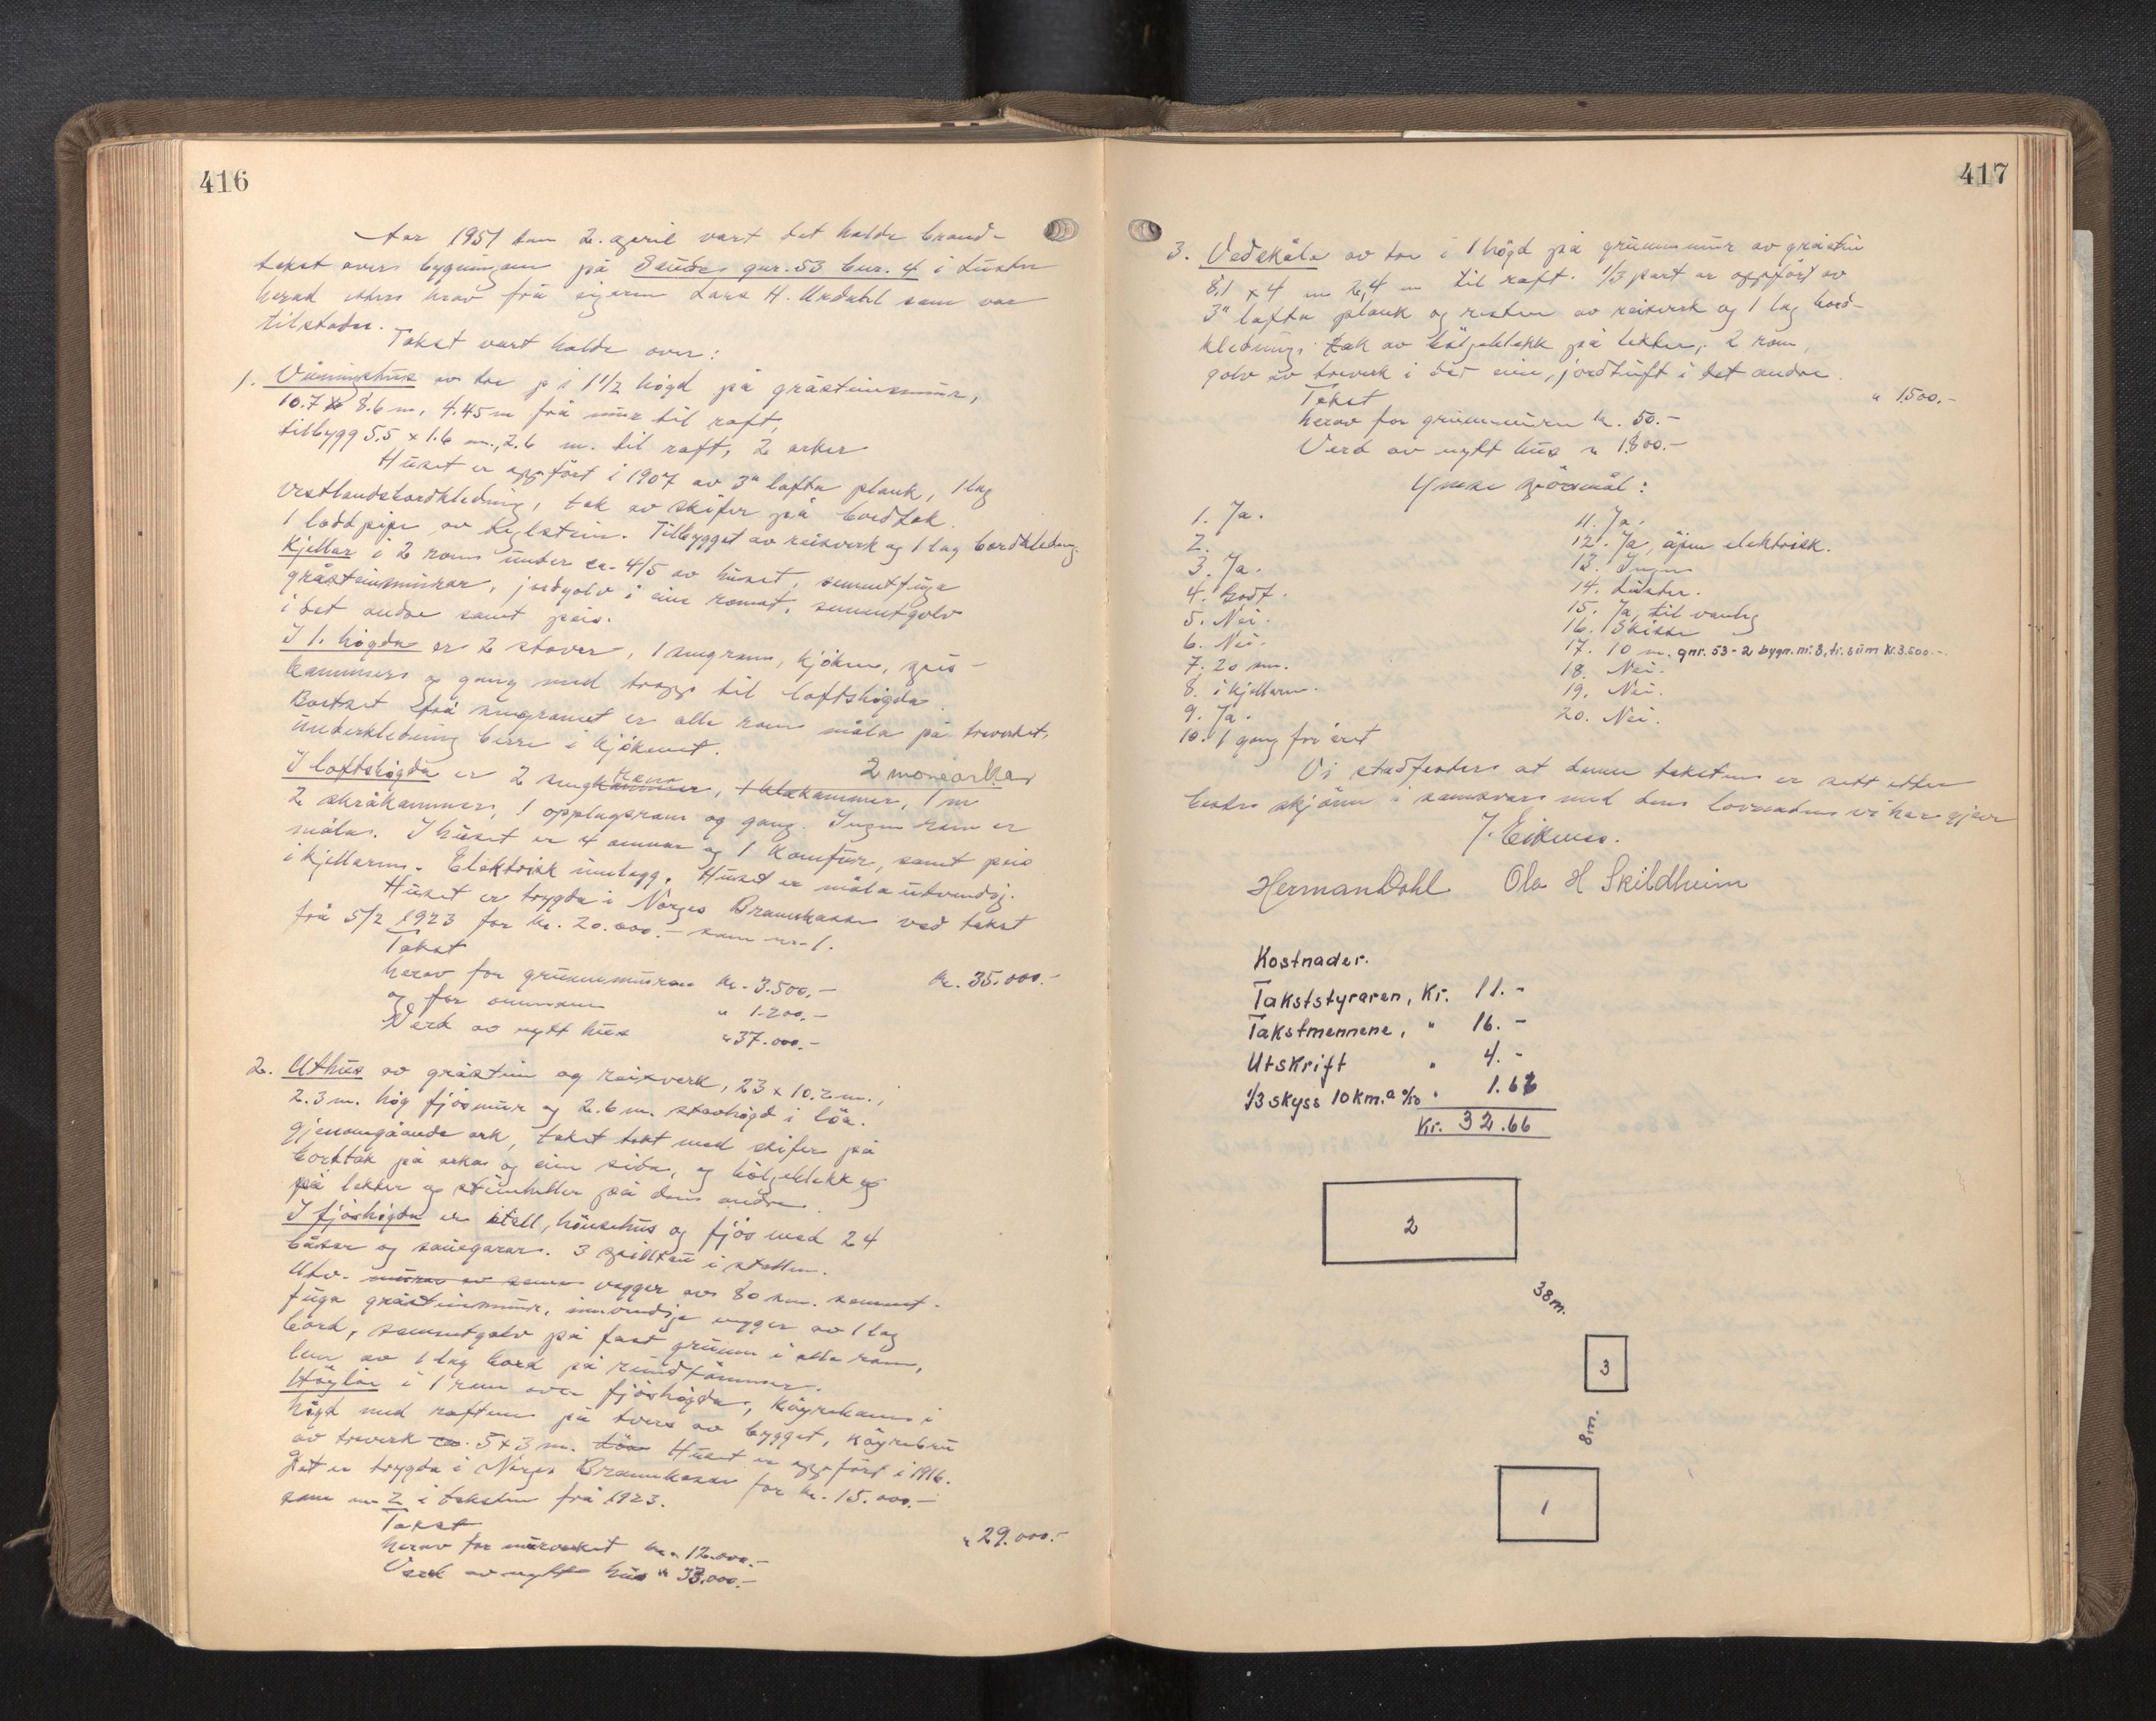 416
Aar 1951 den 2. april vart det halde brand-
takst over bygningen på Saude gnr. 53 bnr. 4 i Luster
herad etter krav frå eigaren Lars H. Urdahl som var
tilstades.
Takst vart halde over:
1. Våningshus av tre på i 1 1/2 högd på gråsteinsmur,
10.7 x 8.6 m, 4.45 m frå mur til raft,
tilbygg 5.5 x 1.6 m., 2.6 m. til raft, 2 arker
Huset er oppfört i 1907 av 3" lafta plank, 1 lag
vestlandsbordkledning, tak av skifer på bordtak.
1 lodd pipe av teglstein. Tilbygget av reisverk og 1 lag bordkledng.
Kjellar i 2 rom under ca. 4/5 av huset, sementfuga
gråsteinsmurar, jordgolv i eine romet, sementgolv
i det andre samt peis.
I 1. högda er 2 stover, 1 sengrom, kjöken, spis-
kammers og gang med trapp til loftshögda.
Bortset frå sengromet er alle rom måla på treverket,
underkledning berre i kjökenet.
I loftshögda er 2 sengkammer rom, 1 klekammer, 1 m 2 monearker
2 skråkammers, 1 opplagsrom og gang. Ingen rom er
måla. I huset er 4 omnar og 1 komfur, samt peis
i kjellaren. Elektrisk innlagg. Huset er måla utvendig.
Huset er trygda i Norges Brannkasse ved takst
frå 5/2 1923 for kr. 20.000.- som nr. 1.
Takst kr. 35.000.-
herav for grunnmuren kr. 3.500.-
og for omnane " 1.200.-
Verd av nytt hus " 37.000.-
2. Uthus av gråstein og reisverk, 23 x 10.2 m.,
2.3 m. hög fjösmur og 2.6 m. stavhögd i löa.
Gjenomgåande ark, taket tekt med skifer på
bordtak på arka og eine sida, og bölgeblekk og
på lekter og steinheller på den andre.
I fjöshögda er stall, hönsehus og fjös med 24
båser og sauegarar. 3 spilltau i stallen.
Utv. murar av semen vegger av 80 sm. sement-
fuga gråsteinsmur, innvendige vegger av 1 lag
bord, sementgolv på fast grunn i alle rom,
lem av 1 lag bord på rundtömmer.
Höylöe i 1 rom over fjöshögda, köyrebane i
högd med raftene på tvers av bygget, köyrebru
av treverk ca. 5 x 3 m. Huset er oppfört i 1916.
Det er trygda i Norges Brannkasse for kr. 15.000.-
som nr. 2 i taksten frå 1923.
Takst " 29.000.-
herav for murverket kr. 12.000.-
Verd av nytt hus " 33.000.-
417
3. Vedskåle av tre i 1 högd på grunnmur av gråstein
8,1 x 4 m 2,4 m til raft. 1/3 part er oppfört av
3" lafta plank og resten av reisverk og 1 lag bord-
kledning, tak av bölgeblekk på lekter, 2 rom,
golv av treverk i det eine, jordtuft i det andre.
Takst " 1.500.-
herav for grunnmuren kr. 50.-
Verd av nytt hus " 1.800.-
Ymse spörsmål:
1. Ja.
2.
3. Ja.
4. Godt.
5. Nei.
6. Nei.
7. 20 m.
8. i kjellaren.
9. Ja.
10. 1 gang for året
11. Ja.
12. Ja, åpen elektrisk.
13. Ingen
14. Luster.
15. Ja, til vanleg
16. Skisse
17. 10 m. gnr. 53-2 bygn. nr. 3, tr. sum kr. 3.500.-
18. Nei.
19. Nei.
20. Nei.
Vi stadfester at denne taksten er sett etter
beste skjönn i samsvar med den lovnaden vi har gjeve
J. Eikenes.
Herman Dahl Ola H Skildheim
Kostnader.
Takststyraren, Kr. 11.-
Takstmennene, " 16.-
Utskrift " 4.-
1/3 skyss 10 km. a 0/50 " 1.66
Kr. 32.66
2
38m.
3
8m.
1